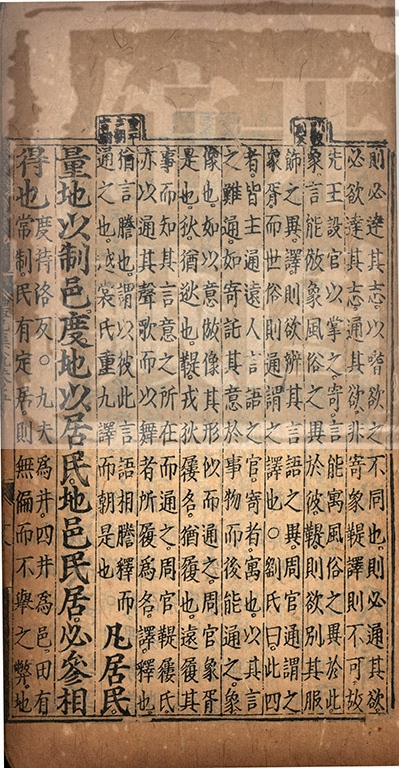 則必達其志以嗜欲之不同也則必通其欲
必欲達其志通其欲非寄象鞮譯則不可故
先王設官以掌之寄言能寓風俗之異於此
象言能放象風俗之異於彼鞮則欲別其服
飾之異譯則欲辨其言語之異周官通謂之
象胥而世俗則通謂之譯也○劉氏曰此四
者皆主通遠人言語之官寄者寓也以其言
之難通如寄託其意於事物而後能通之象
像也如以意倣像其形似而通之周官象胥
是也狄猶逖也鞮戎狄屨名猶履也遠履其
事而知其言意之所在而通之周官鞮鞻氏
亦以通其聲歌而以舞者所屨爲名譯釋也
猶言謄也謂以彼此言語相謄釋而
通之也越裳氏重九譯而朝是也
凡居民
量地以制邑度地以居民地邑民居必參相
得也
度待洛反○九夫爲井四井爲邑田有
常制民有定居則無偏而不舉之弊地